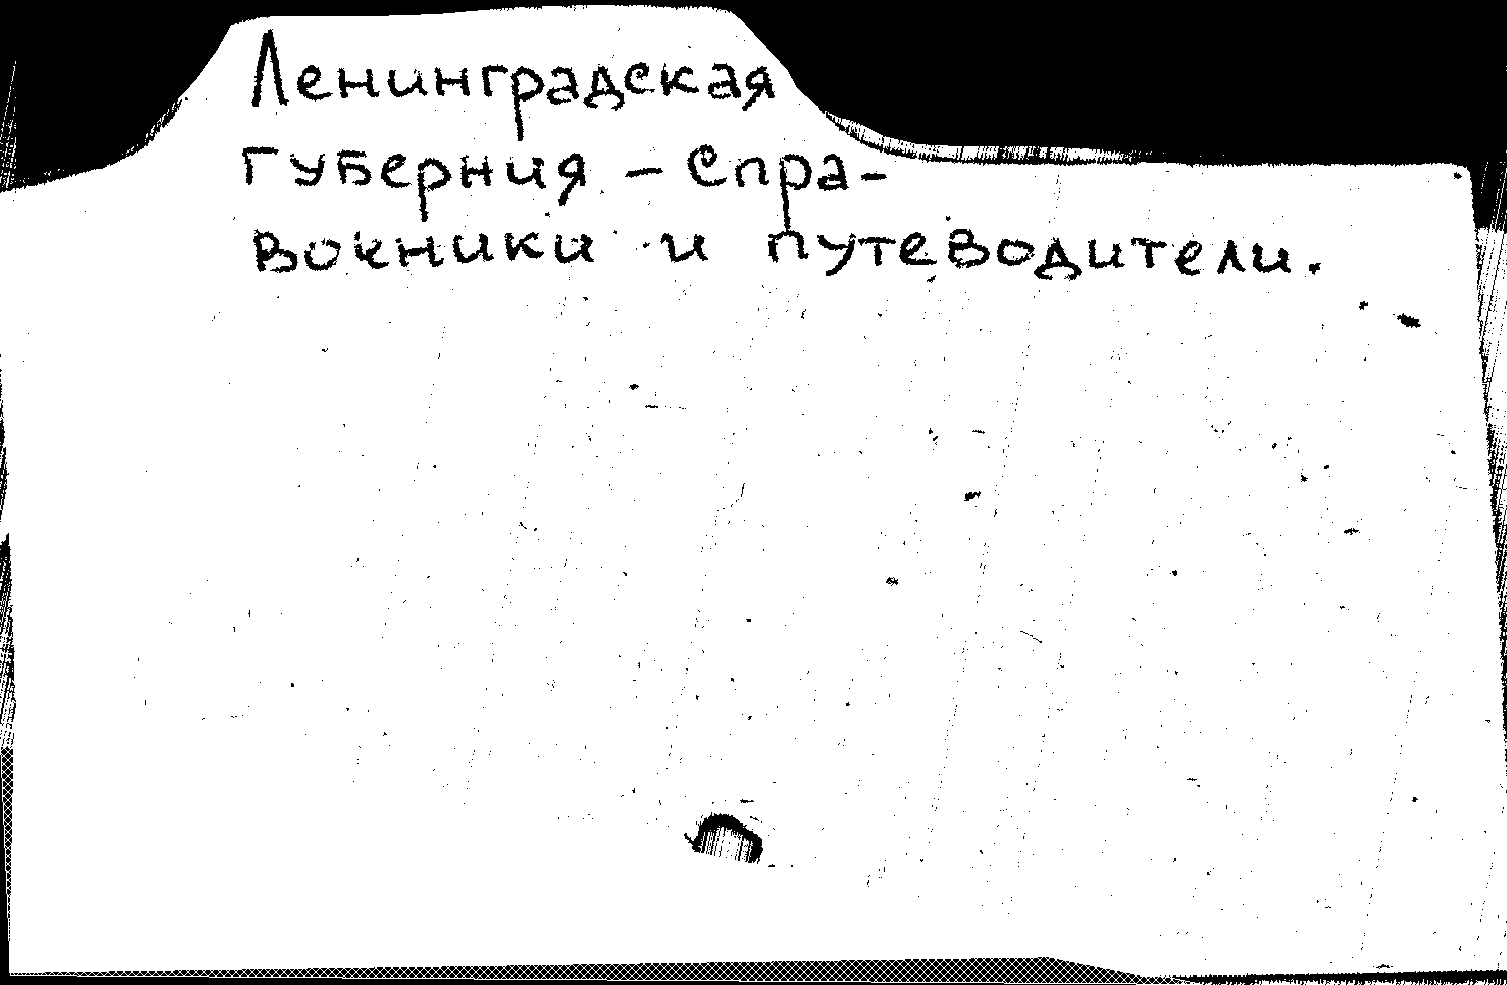 Ленинградская
губерния - Спра-
вочники и путеводители.